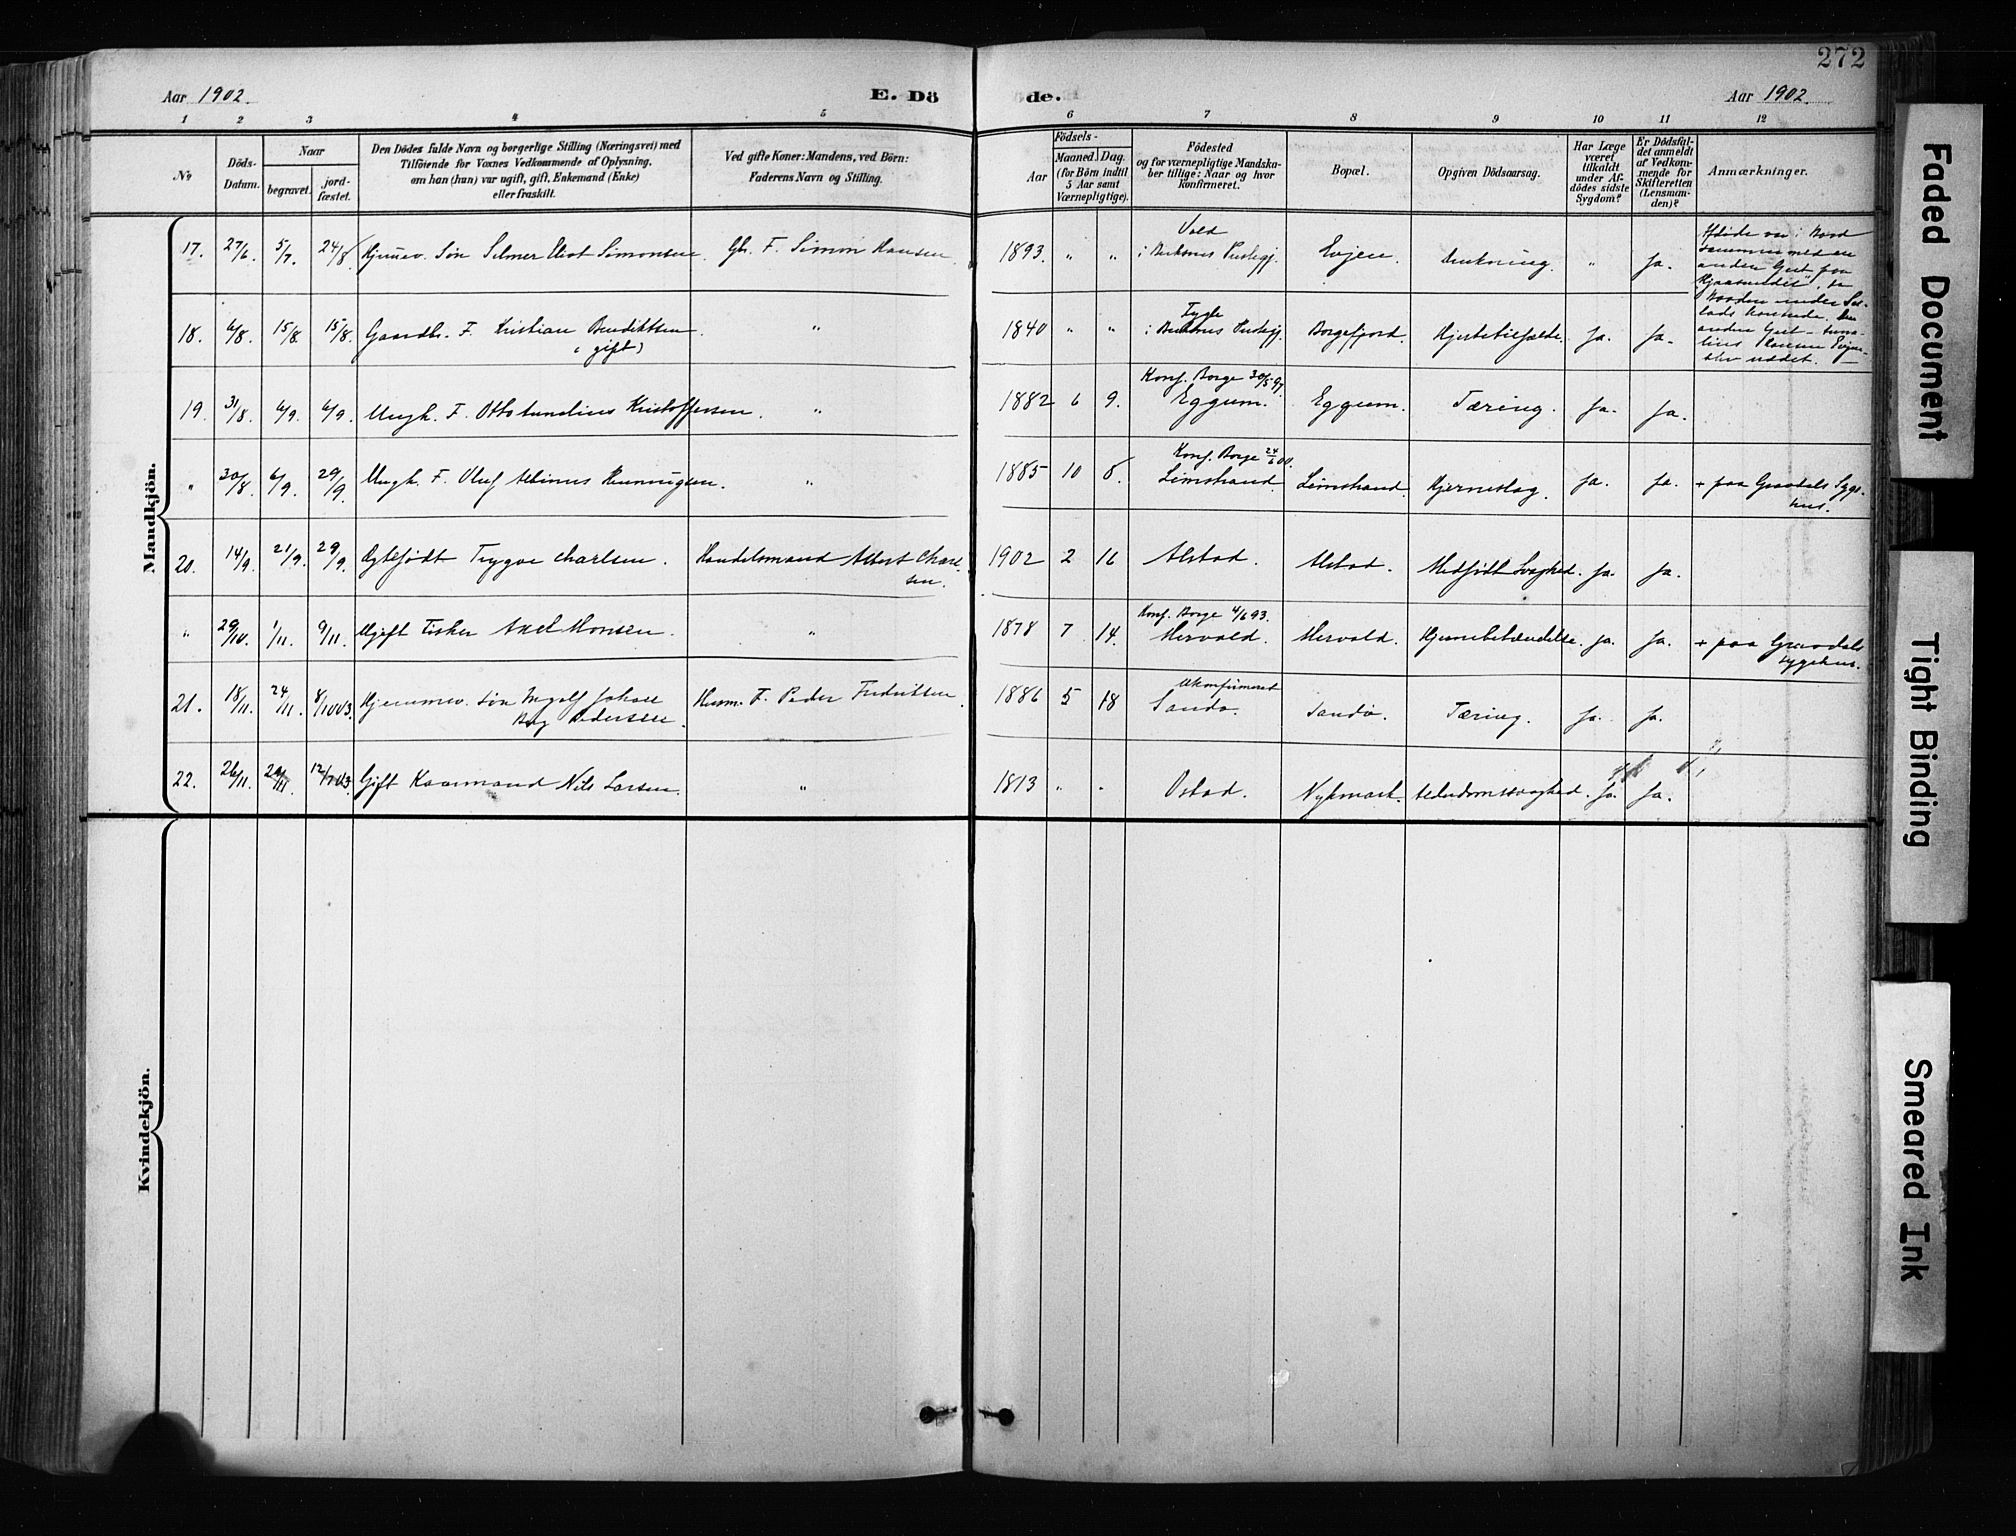 272
Aar 1902.
E. Dö
de.
Aar 1902.
1 2 3 4 5 6 7 8 9 10 11 12
No
Döds-
Datum.
Naar
begravet.
jord-
fæstet.
Den Dödes fulde Navn og borgerlige Stilling (Næringsvei) med
Tilföiende for Voxnes Vedkommende af Oplysning,
om han (hun) var ugift, gift, Enkemand (Enke)
eller fraskilt.
Ved gifte Koner: Mandens, ved Börn:
Faderens Navn og Stilling.
Födsels-
Aar
Maaned.
Dag.
(for Börn indtil
5 Aar samt
Værnepligtige).
Födested
og for værnepligtige Mandska-
ber tillige: Naar og hvor
konfirmeret.
Bopæl.
Opgiven Dödsaarsag.
Har Læge
været
tilkaldt
under Af-
dödes sidste
Sygdom?
Er Dödsfal-
det anmeldt
af Vedkom-
mende for
Skifteretten
(Lensman-
den)?
Anmærkninger.
Mandkjön.
17. 27/6. 5/7. 24/8 Hjemmev. Søn Selmer Eliot Simonsen. Gbr. F. Simon Hansen. 1893. " " Vold
i Buksnes Prestegj. Evjen. Drukning. " Ja.
18. 6/8. 15/8. 15/8. Gaardbr. F. Kristian Bendiktsen
(gift) " 1840 " " Tygle
i Buksnes Prestegj. Borgefjord. Hjertetilfælde. Ja. Ja.
19. 31/8. 6/9. 6/9. Ungk. F. Otto Cunelius Kristoffersen. " 1882 6 9. Konf. Borge 30/5 97.
Eggum. Eggum. Tæring. Ja. Ja.
" 30/8. 6/9. 29/9. Ungk. F. Oluf Albinus Henningsen. " 1885 10 8. Konf. Borge 24/6 00.
Limstrand. Limstrand. Hjerneslag. Ja. Ja. + paa Gravdals Syge-
hus.
20. 14/9. 21/9. 29/9. Ægtefødt Trygve Charlsen. Handelsmand Albert Charl-
sen. 1902 2 16 Alstad. Alstad. Medfødt Svaghed. Ja. Ja.
" 29/10. 1/11. 9/11. Ugift Fisker Axel Monsen. " 1878 7 14. Konf. Borge 4/6 93.
Mervold. Mervold. Hjernebetændelse. Ja. Ja. + paa Gravdals
sygehus.
21. 18/11. 24/11. 8/1 003. Hjemmev. Søn Ingolf Johan
Berg Pedersen. Husm. F. Peder Fredriksen. 1886 5 18 Ukonfirmeret
Sandø. Sandø. Tæring. Ja. Ja.
22. 26/11. 29/11. 12/1 003. Gift Kaarmand Nils Larsen. " 1813 " " Ostad. Nykmark. Alderdomssvaghed. Ja. Ja.
Kvindekjön.
Faded Document
Tight Binding
Smeared Ink